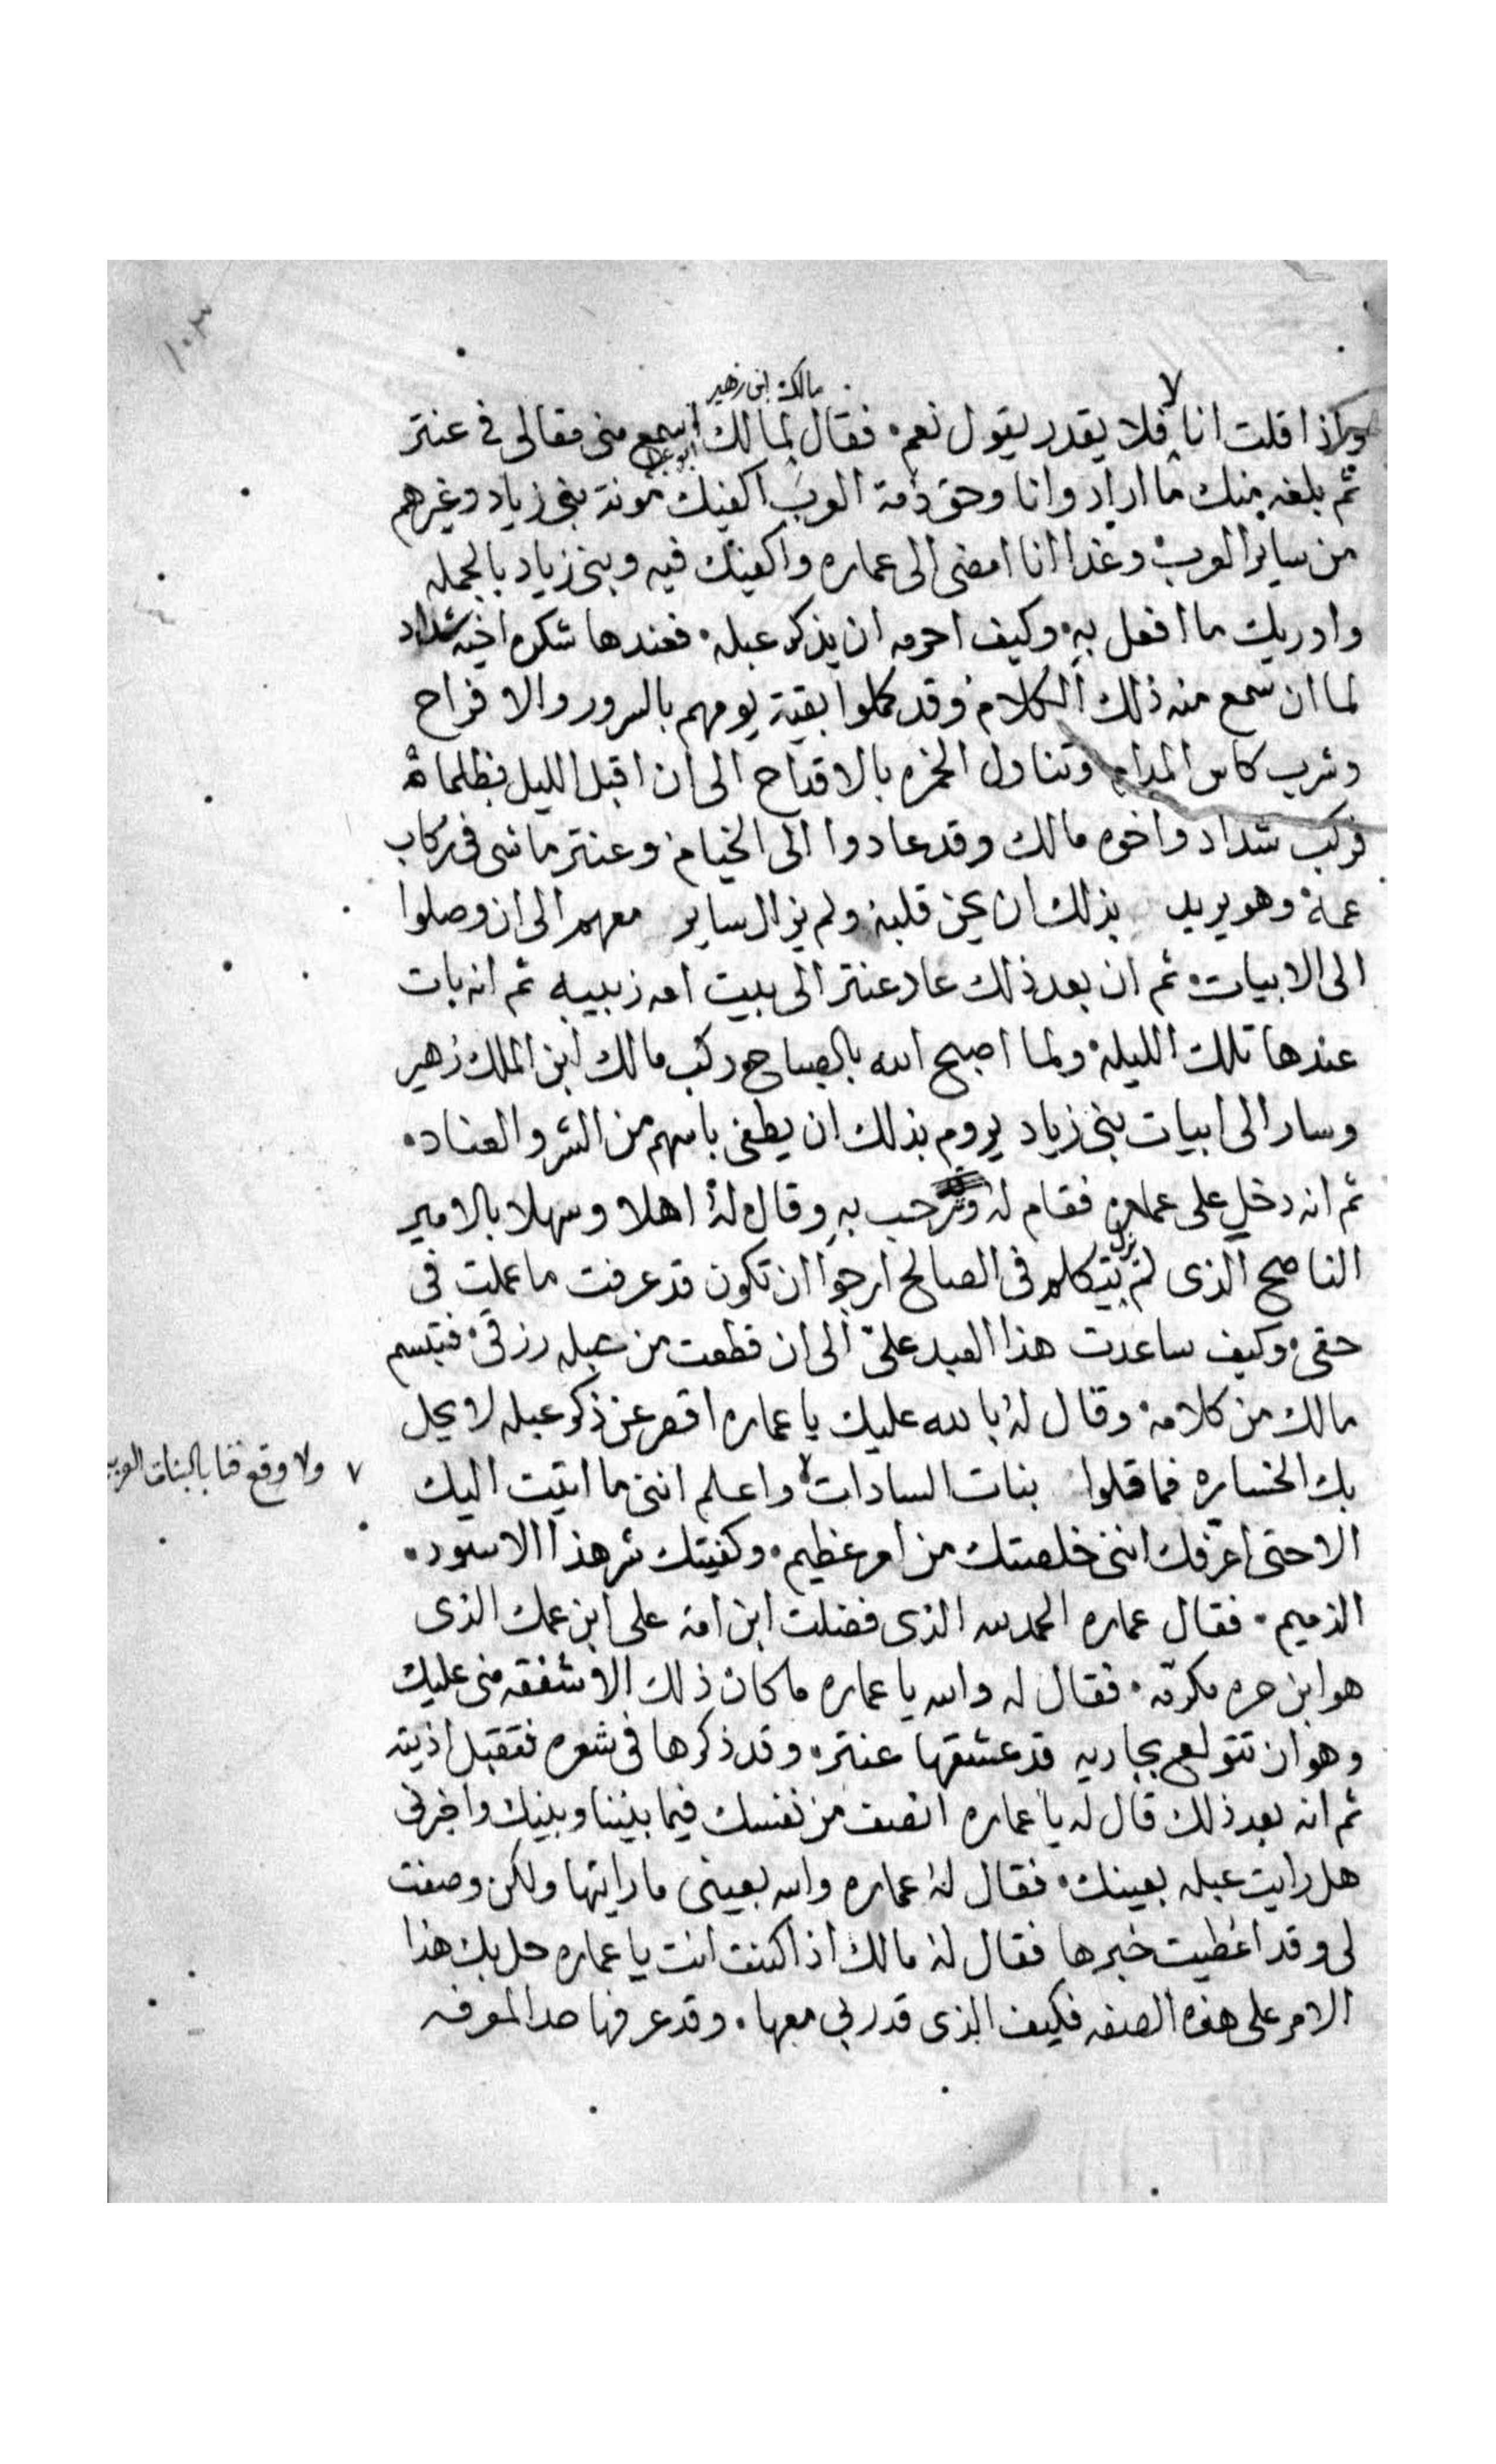 ١٠٣
مالك ابن زهير
واذا قلت انا لا فلا يقدر يقول نعم. فقال لمالك ابو عبلة اسمع منى مقالى فى عنتر
ثم بلغه منك ما اراد وانا وحق ذمة العرب اكفيك مونة بنى زياد وغيرهم
من ساير العرب وغدا انا امضى الى عماره واكفيك فيه وبنى زياد بالجمله
واوريك ما افعل به. وكيف احرمه ان يذكر عبله. فعندها شكره اخيه شداد
لما ان سمع منه ذلك الكلام وقد كملوا بقية يومهم بالسرور والافراح
وشرب كاس المدام وتناول الخمره بالاقداح الى ان اقبل الليل بظلماته
فركب شداد واخوه مالك وقد عادوا الى الخيام وعنتر ماشى فى ركاب
عمه وهو يريد بذلك ان يحن قلبه ولم يزال ساير معهم الى ان وصلوا
الى الابيات ثم ان بعد ذلك عاد عنتر الى بيت امه زبيبه ثم انه بات
عندها تلك الليله ولما اصبح الله بالصباح ركب مالك ابن الملك زهير
وسار الى ابيات بنى زياد يروم بذلك ان يطفى باسهم من الشر والعناد.
ثم انه دخل على عماره فقام له وترحب به وقال له اهلا وسهلا بالامير
الناصح الذى لم يزل يتكلم فى الصالح ارجوا ان تكون قد عرفت ما عملت فى
حقى وكيف ساعدت هذا العبد علىّ الى ان قطعت من عبله رزقى فتبسم
مالك من كلامه وقال له بالله عليك يا عماره اقصر عن ذكر عبله لا يحل
بك الخساره فما قلوا بنات السادات واعلم اننى ما اتيت اليك
٧ ولا وقع قنا بالبنات العرب
الا حتى اعرفك اننى خلصتك من امر عظيم. وكفيتك شر هذا الاسود.
الذميم. فقال عماره الحمد لله الذى فضلت ابن امه على ابن عمك الذى
هو ابن حره مكرمه. فقال له والله يا عماره ما كان ذلك الا شفقه منى عليك
وهو ان تتولع بجاريه قد عشقها عنتر. وقد ذكرها فى شعره فتقبل اذيته
ثم انه بعد ذلك قال له يا عماره انصف من نفسك فيما بيننا وبينك واخبرنى
هل رايت عبله بعينك. فقال له عماره والله بعينى ما رايتها ولكن وصفت
لى وقد اعطيت خبرها فقال له مالك اذا كنت انت يا عماره حل بك هذا
الامر على هذه الصفه فكيف الذى قد ربى معها. وقد عرفها حد المعرفه